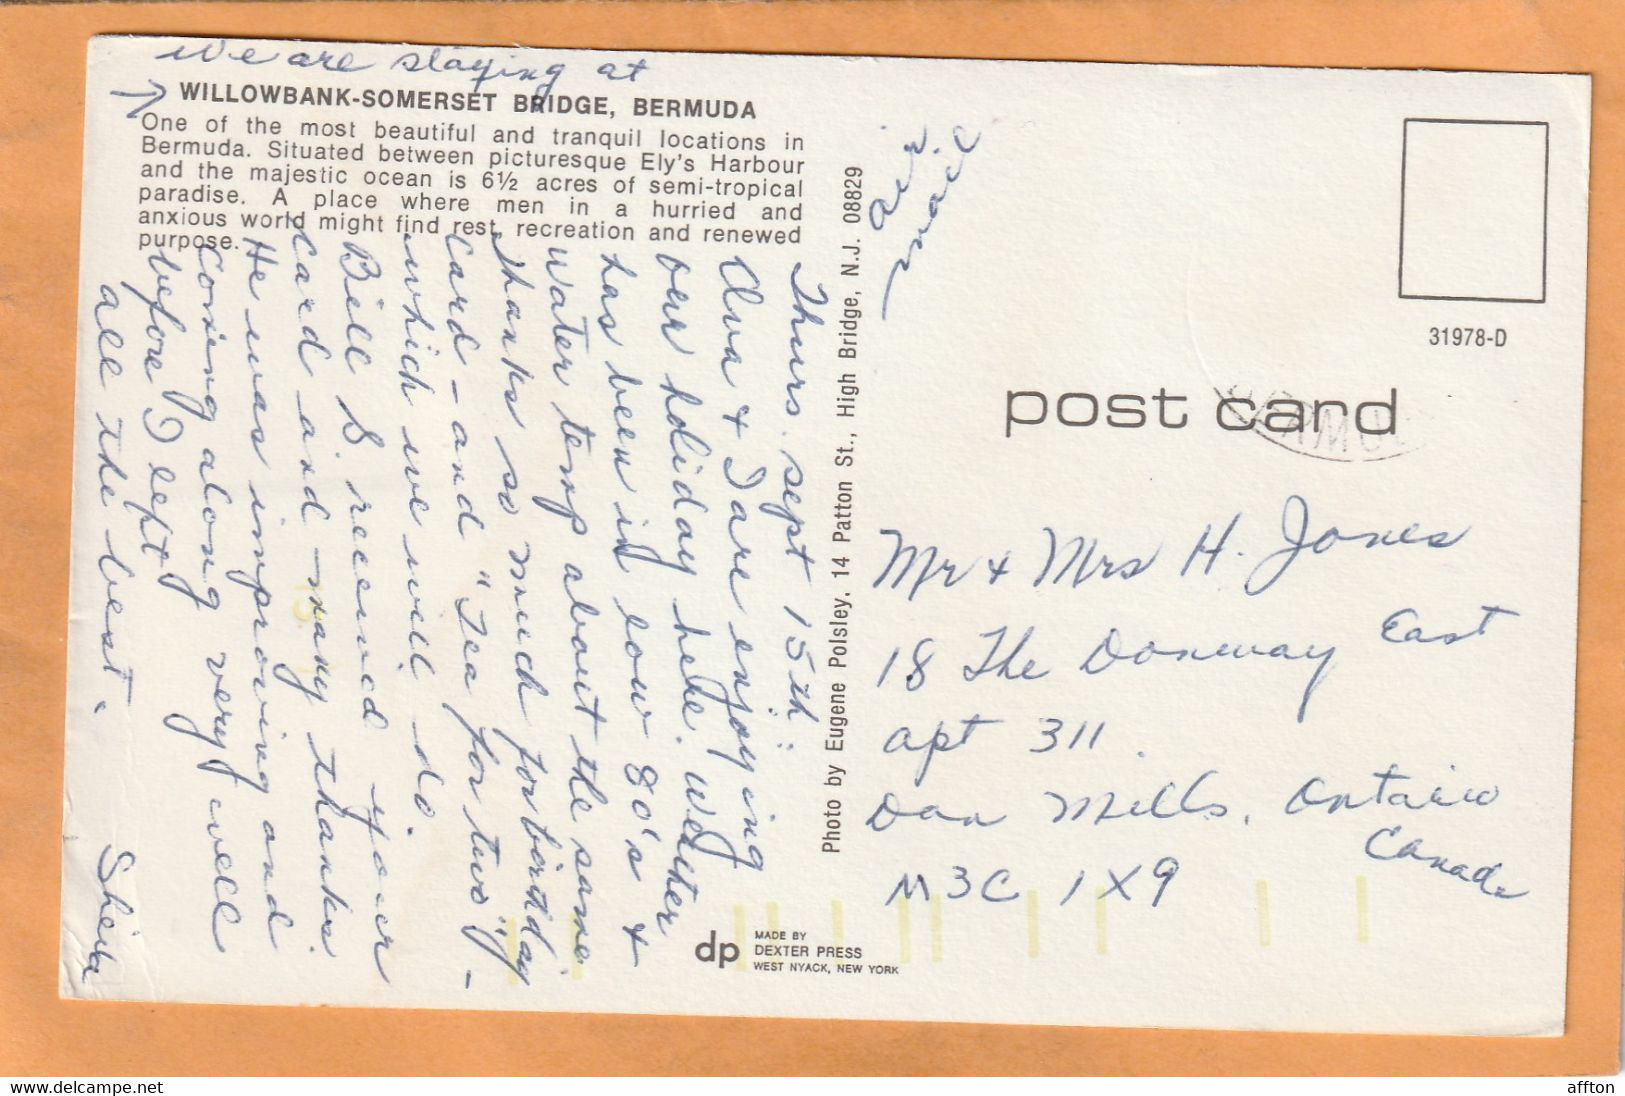 We are staying at
WILLOWBANK-SOMERSET BRIDGE, BERMUDA
One of the most beautiful and tranquil locations in
Bermuda. Situated between picturesque Ely's Harbour
and the majestic ocean is 6½ acres of semi-tropical
paradise. A place where men in a hurried and
anxious world might find rest, recreation and renewed
purpose.
Thurs. Sept 15th
Alva & I are enjoying
our holiday here. Weather
has been in low 80's &
water temp about the same.
Thanks so much for birthday
card - and "Tea for two" -
which we will do.
Bill S. received your
card and many thanks.
He was improving and
coming along very well
before I left
all the best.
Sheila
Photo by Eugene Polsley, 14 Patton St., High Bridge, N.J. 08829
dp
MADE BY
DEXTER PRESS
WEST NYACK, NEW YORK
air
mail
31978-D
post card
Mr & Mrs H. Jones
18 The Donway East
apt 311.
Don Mills, Ontario
Canada
M3C 1X9
affton